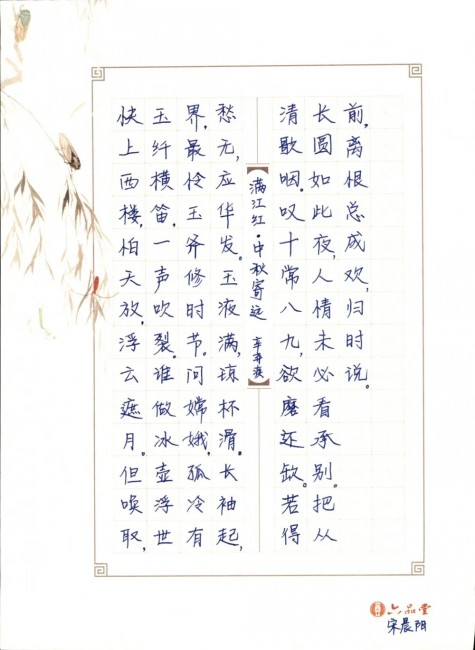 满江红·中秋寄远 辛弃疾
快上西楼,怕天放,浮云遮月。但唤取,
玉纤横笛,一声吹裂。谁做冰壶浮世
界,最怜玉斧修时节。问嫦娥,孤冷有
愁无,应华发。玉液满,琼杯滑。长袖起,
清歌咽。叹十常八九,欲磨还缺。若得
长圆如此夜,人情未必看承别。把从
前,离恨总成欢,归时说。
六品堂
宋晨阳